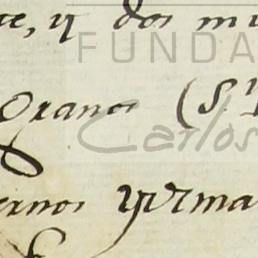 te, y dos mi
FUNDA
Oranos (S
Carlos
ernos yrma